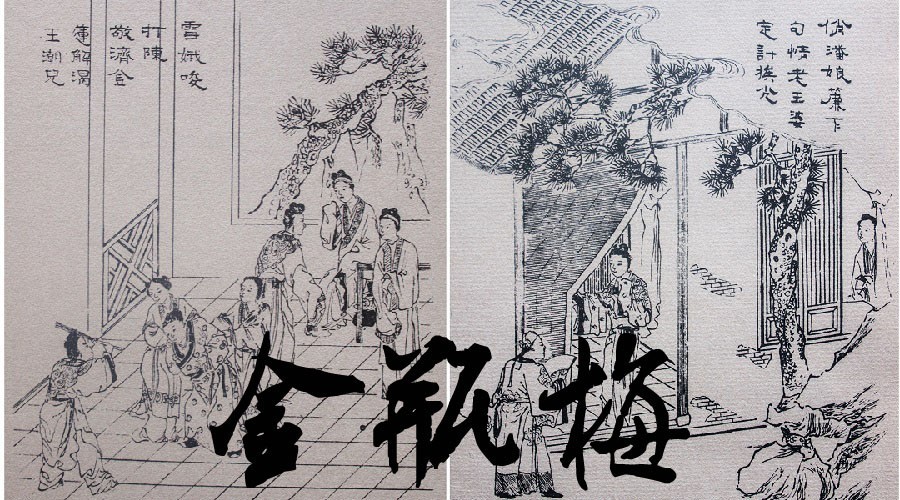 雪娥唆
打陳
敬濟金
蓮解渴
王潮兒
俏潘娘簾下
勾情老王婆
定計挨光
金瓶梅